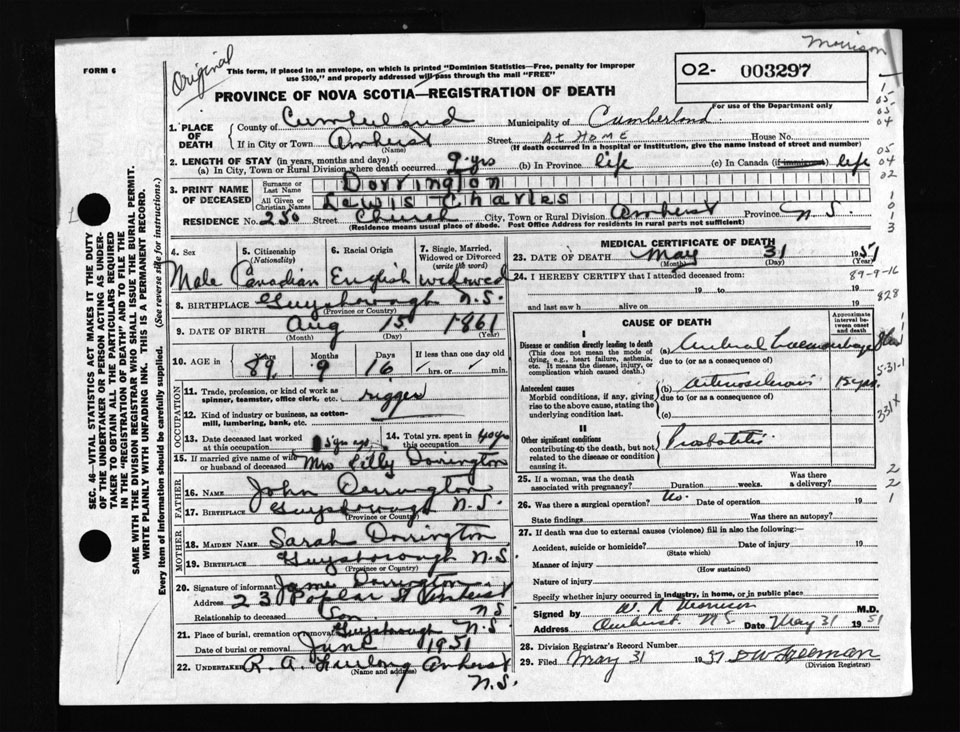 Morrison
FORM 6
Original
This form, if placed in an envelope, on which is printed "Dominion Statistics—Free, penalty for improper
use $300," and properly addressed will pass through the mail "FREE"
O2- 003297
PROVINCE OF NOVA SCOTIA—REGISTRATION OF DEATH
For use of the Department only
1. PLACE OF DEATH
County of Cumberland Municipality of Cumberland
If in City or Town Amherst Street At Home House No.
(Name) (If death occurred in a hospital or institution, give the name instead of street and number)
2. LENGTH OF STAY (in years, months and days)
(a) In City, Town or Rural Division where death occurred 9 yrs (b) In Province life (c) In Canada (if immigrant) life
3. PRINT NAME OF DECEASED
Surname or Last Name Dorrington
All Given or Christian Names Lewis Charles
RESIDENCE No. 250 Street Church City, Town or Rural Division Amherst Province N.S.
(Residence means usual place of abode. Post Office Address for residents in rural parts not sufficient)
SEC. 46—VITAL STATISTICS ACT MAKES IT THE DUTY
OF THE UNDERTAKER OR PERSON ACTING AS UNDER-
TAKER TO OBTAIN ALL THE PARTICULARS REQUIRED
IN THE "REGISTRATION OF DEATH" AND TO FILE THE
SAME WITH THE DIVISION REGISTRAR WHO SHALL ISSUE THE BURIAL PERMIT.
WRITE PLAINLY WITH UNFADING INK. THIS IS A PERMANENT RECORD.
Every item of Information should be carefully supplied. (See reverse side for instructions.)
4. Sex Male
5. Citizenship (Nationality) Canadian
6. Racial Origin English
7. Single, Married, Widowed or Divorced (write the word) widowed
8. BIRTHPLACE Guysborough N.S.
(Province or Country)
9. DATE OF BIRTH Aug 15 1861
(Month) (Day) (Year)
10. AGE in Years Months Days If less than one day old
89 9 16 hrs. or min.
OCCUPATION
11. Trade, profession, or kind of work as
spinner, teamster, office clerk, etc. rigger
12. Kind of industry or business, as cotton-
mill, lumbering, bank, etc.
13. Date deceased last worked at this occupation yrs ago
14. Total yrs. spent in this occupation 40 yrs
15. If married give name of wife
or husband of deceased Mrs Lilly Dorrington
FATHER
16. NAME John Dorrington
17. BIRTHPLACE Guysborough N.S.
(Province or Country)
MOTHER
18. MAIDEN NAME Sarah Dorrington
19. BIRTHPLACE Guysborough N.S.
(Province or Country)
20. Signature of informant James Dorrington
Address 23 Poplar St Amherst
Relationship to deceased Son N.S
21. Place of burial, cremation or removal Guysborough N.S
Date of burial or removal June 1951
22. UNDERTAKER R. A. Furlong Amherst
(Name and address)
N.S.
MEDICAL CERTIFICATE OF DEATH
23. DATE OF DEATH May 31 1951
(Month) (Day) (Year)
24. I HEREBY CERTIFY that I attended deceased from:
19 to 19
and last saw h alive on 19
CAUSE OF DEATH
Approximate interval between onset and death
I
Disease or condition directly leading to death
(This does not mean the mode of
dying, e.g., heart failure, asthenia,
etc. It means the disease, injury, or
complication which caused death.)
(a) Cerebral Haemorrhage
due to (or as a consequence of)
Antecedent causes
Morbid conditions, if any, giving
rise to the above cause, stating the
underlying condition last.
(b) Arteriosclerosis 15 yrs.
due to (or as a consequence of)
(c)
II
Other significant conditions
contributing to the death, but not
related to the disease or condition
causing it.
Prostatitis
25. If a woman, was the
death associated with pregnancy? Duration weeks. Was there a delivery?
26. Was there a surgical operation? No. Date of operation 19
State findings Was there an autopsy?
27. If death was due to external causes (violence) fill in also the following:—
Accident, suicide or homicide? Date of injury 19
(State which)
Manner of injury
(How sustained)
Nature of injury
Specify whether injury occurred in industry, in home, or in public place
Signed by W. R Morrison M.D.
Address Amherst. N.S. Date May 31 1951
28. Division Registrar's Record Number
29. Filed May 31 1951
(Division Registrar)
1
05
03
04
05
04
02
1
0
1
3
89-9-16
828
5-31-1
331X
2
2
1